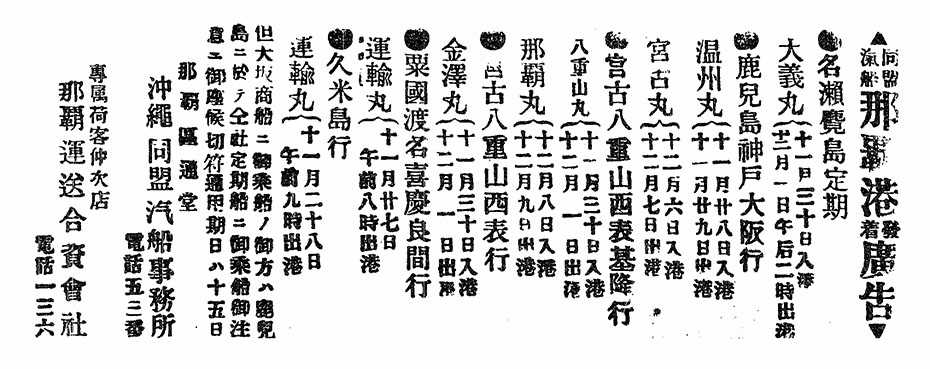 ▲同盟汽船那覇港發着廣告▼
●名瀬鹿島定期
大義丸{十一月三十日入港
十二月一日午后二時出港
●鹿兒島神戸大阪行
温州丸{十一月廿八日入港
十一月廿九日出港
宮古丸{十二月六日入港
十二月七日出港
●宮古八重山西表基隆行
八重山丸{十一月三十日入港
十二月一日出港
那覇丸{十二月八日入港
十二月九日出港
●宮古八重山西表行
金澤丸{十一月三十日入港
十二月一日出港
●粟國渡名喜慶良間行
運輸丸{十一月廿七日
午前八時出港
●久米島行
運輸丸{十一月二十八日
午前九時出港
但大坂商船ニ御乗船ノ御方ハ鹿兒
島ニ於テ仝社定期船ニ御乗船御注
意ニ御座候切符通用期日ハ十五日
那覇區通堂
沖繩同盟汽船事務所
電話五三番
專属荷客仲次店
那覇運送合資會社
電話一三六